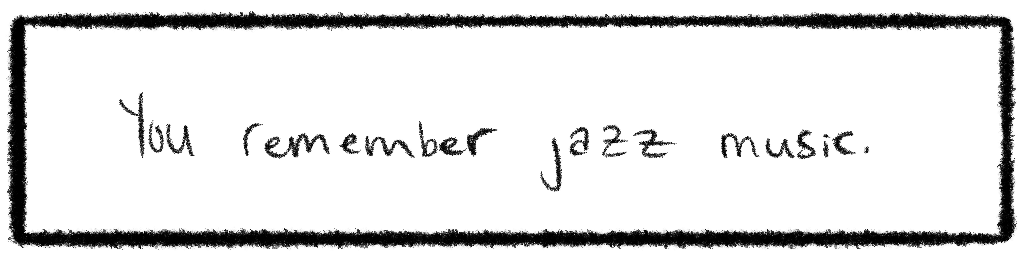 You remember jazz music.